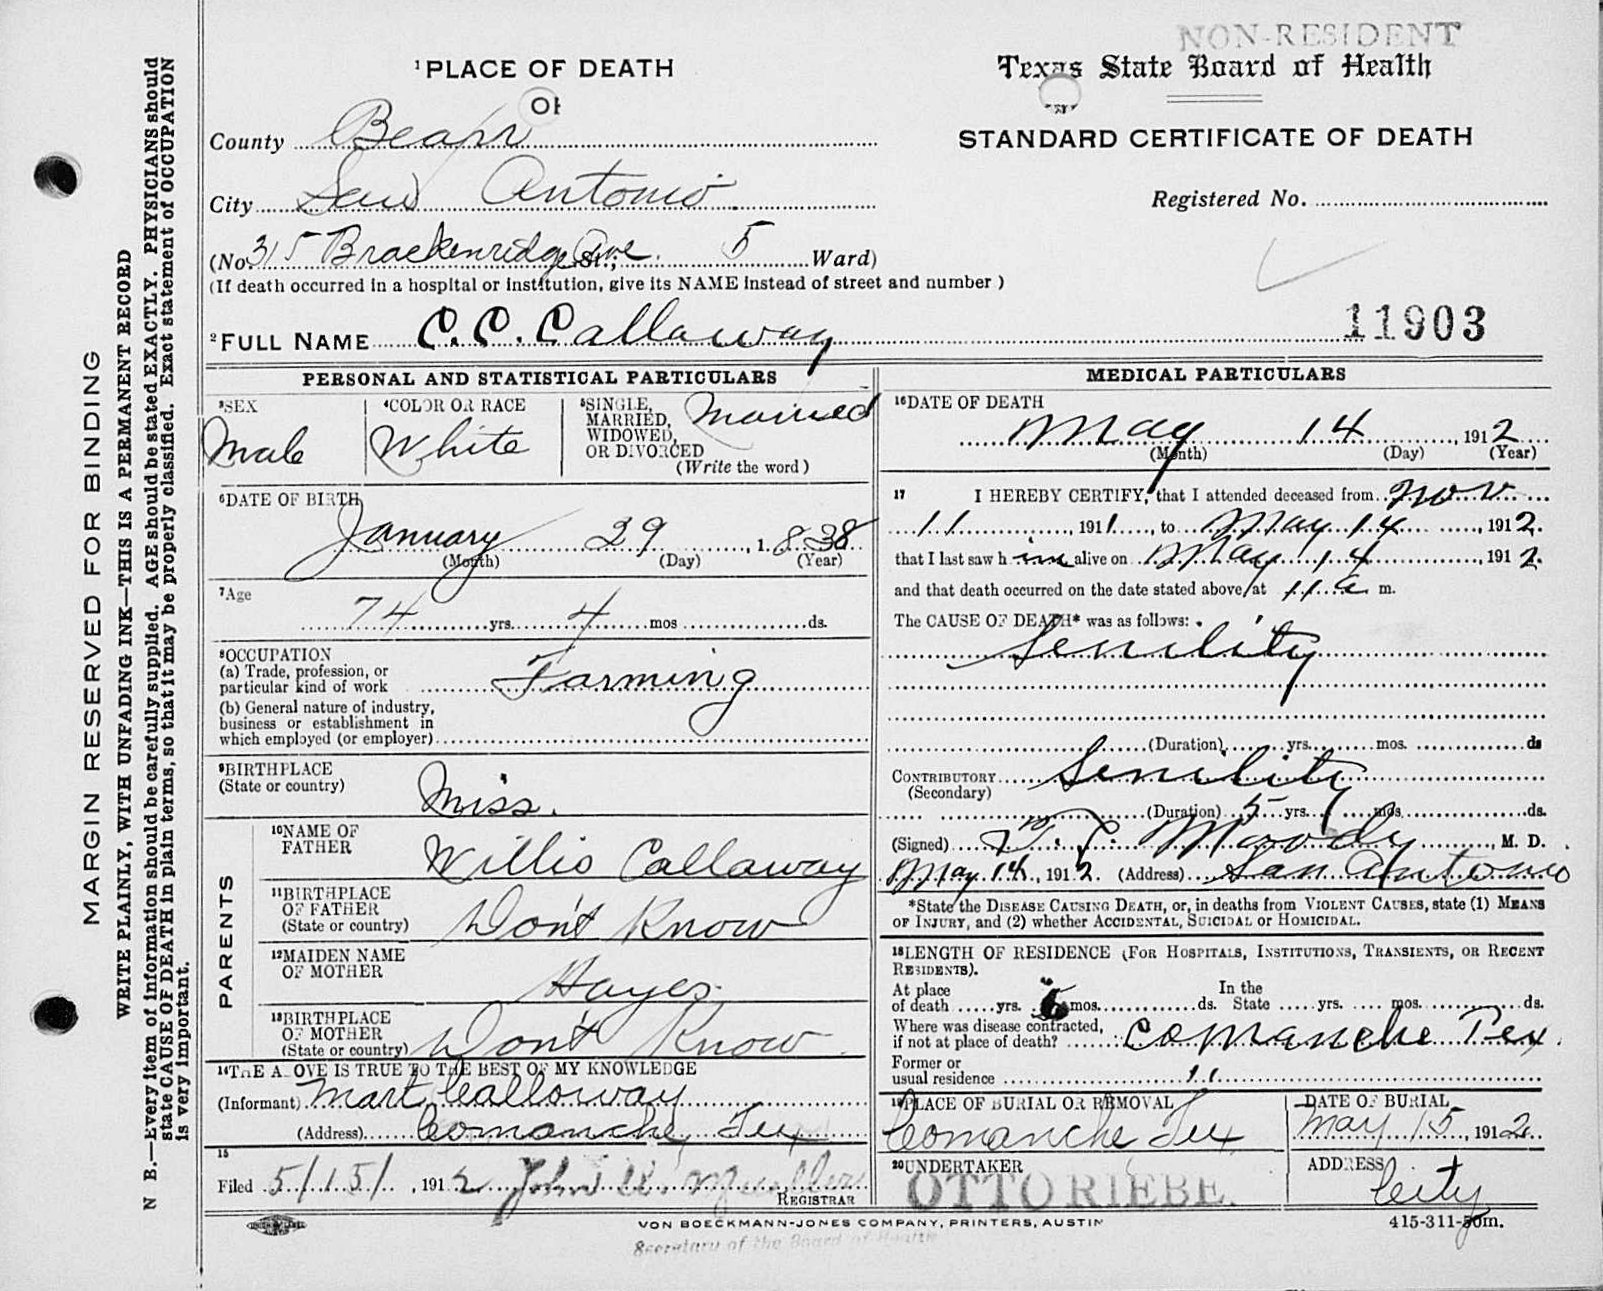 NON-RESIDENT
¹PLACE OF DEATH
Texas State Board of Health
STANDARD CERTIFICATE OF DEATH
County Bexar
City San Antonio
Registered No.
(No. 315 Brackenridge Ave. St.; 5 Ward)
(If death occurred in a hospital or institution, give its NAME instead of street and number)
²FULL NAME C. C. Callaway
11903
PERSONAL AND STATISTICAL PARTICULARS
³SEX
Male
⁴COLOR OR RACE
White
⁵SINGLE, MARRIED, WIDOWED, OR DIVORCED
(Write the word)
Married
⁶DATE OF BIRTH
January 29, 1838
(Month) (Day) (Year)
⁷Age
74 yrs. 4 mos ds.
⁸OCCUPATION
(a) Trade, profession, or
particular kind of work Farming
(b) General nature of industry,
business or establishment in
which employed (or employer)
⁹BIRTHPLACE
(State or country) Miss.
PARENTS
¹⁰NAME OF
FATHER Willis Callaway
¹¹BIRTHPLACE
OF FATHER
(State or country) Don't Know
¹²MAIDEN NAME
OF MOTHER Hayes
¹³BIRTHPLACE
OF MOTHER
(State or country) Don't Know
¹⁴THE A OVE IS TRUE TO THE BEST OF MY KNOWLEDGE
(Informant) Mart Calloway
(Address) Comanche, Tex
15
Filed 5/15/, 1912 John
REGISTRAR
MEDICAL PARTICULARS
¹⁶DATE OF DEATH
May 14, 1912
(Month) (Day) (Year)
17 I HEREBY CERTIFY, that I attended deceased from Nov
11, 1911, to May 14, 1912.
that I last saw him alive on May 14, 1912.
and that death occurred on the date stated above, at 11 a m.
The CAUSE OF DEATH* was as follows:
Senility
(Duration) yrs. mos. ds
CONTRIBUTORY Senility
(Secondary)
(Duration) 5 yrs. mos. ds.
(Signed) Moody, M. D.
May 14, 1912. (Address) San Antonio
*State the DISEASE CAUSING DEATH, or, in deaths from VIOLENT CAUSES, state (1) MEANS
OF INJURY, and (2) whether ACCIDENTAL, SUICIDAL OR HOMICIDAL.
¹⁸LENGTH OF RESIDENCE (FOR HOSPITALS, INSTITUTIONS, TRANSIENTS, OR RECENT
RESIDENTS).
At place
of death yrs. 6 mos. ds. In the State yrs. mos. ds.
Where was disease contracted,
if not at place of death? Comanche Tex.
Former or
usual residence 11
¹⁹PLACE OF BURIAL OR REMOVAL
Comanche Tex
DATE OF BURIAL
May 15, 1912
²⁰UNDERTAKER
OTTO RIEBE.
ADDRESS
City
VON BOECKMANN-JONES COMPANY, PRINTERS, AUSTIN
415-311-50m.
Secretary of the Board of Health
MARGIN RESERVED FOR BINDING
WRITE PLAINLY, WITH UNFADING INK—THIS IS A PERMANENT RECORD
N B.—Every item of information should be carefully supplied. AGE should be stated EXACTLY. PHYSICIANS should
state CAUSE OF DEATH in plain terms, so that it may be properly classified. Exact statement of OCCUPATION
is very important.